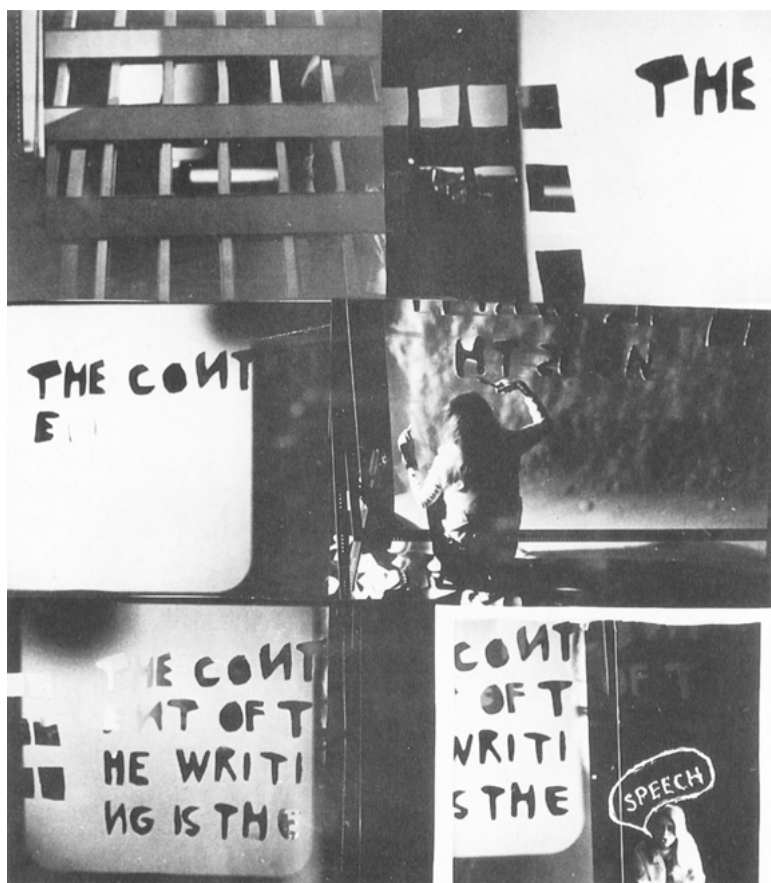 THE
THE CONT
E
THE CONT
ENT OF T
HE WRITI
NG IS THE
CONT
OF T
WRITI
S THE
OF T
SPEECH